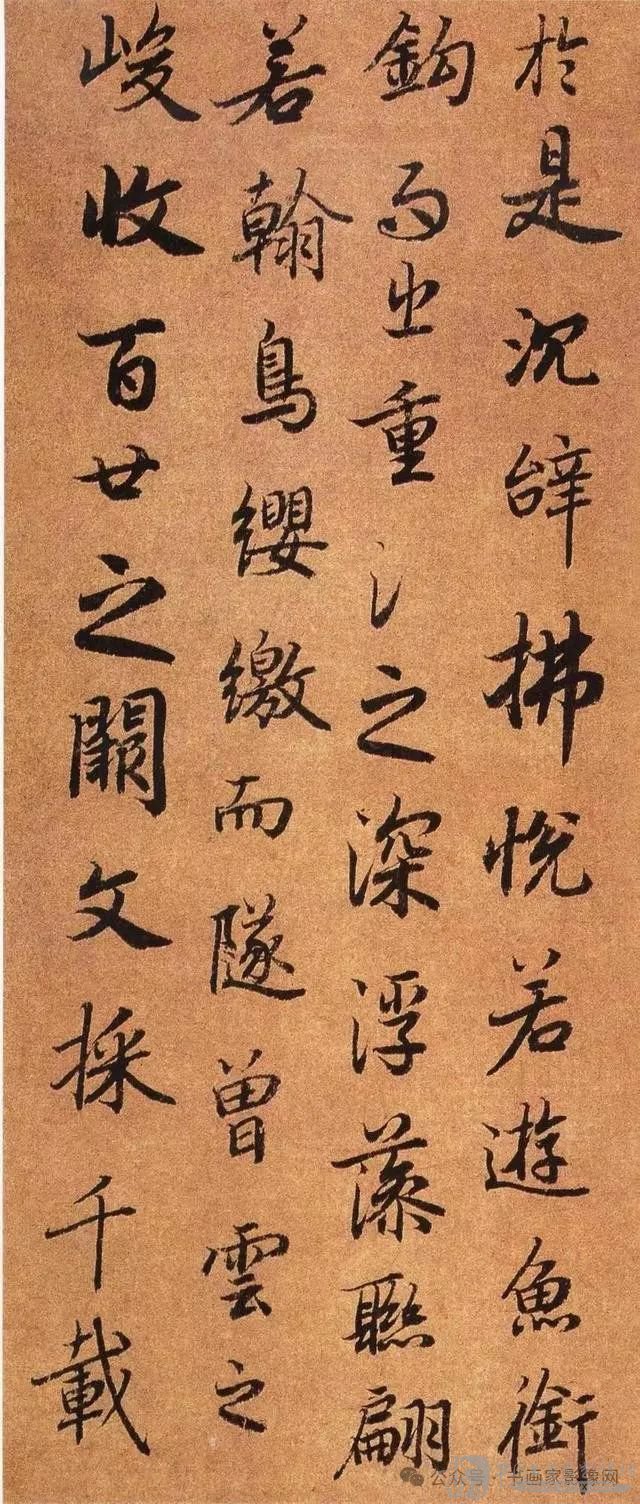 於是沉辝拂悅若遊魚銜
鈎而出重氵之深浮藻聯翩
若翰鳥纓繳而隧曾雲之
峻收百廿之闕文採千載
公众号 · 书画家影像网